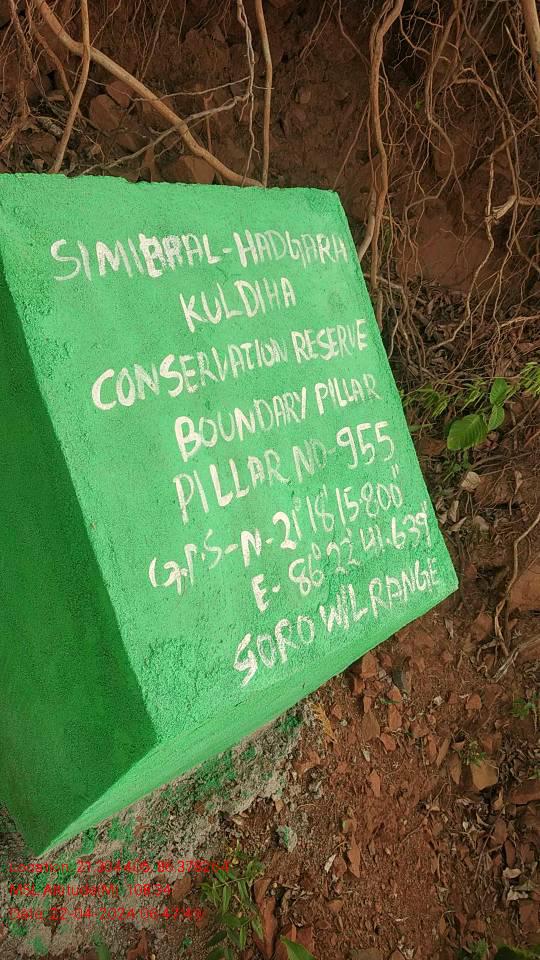 SIMILIPAL-HADGARH
KULDIHA
CONSERVATION RESERVE
BOUNDARY PILLAR
PILLAR NO-955
G.P.S-N-21°18'15.800"
E-86°22'41.639"
SORO W/L RANGE
Location: 21.304405, 86.378264
MSL Altitude(M): 108.34
Date: 22-04-2024